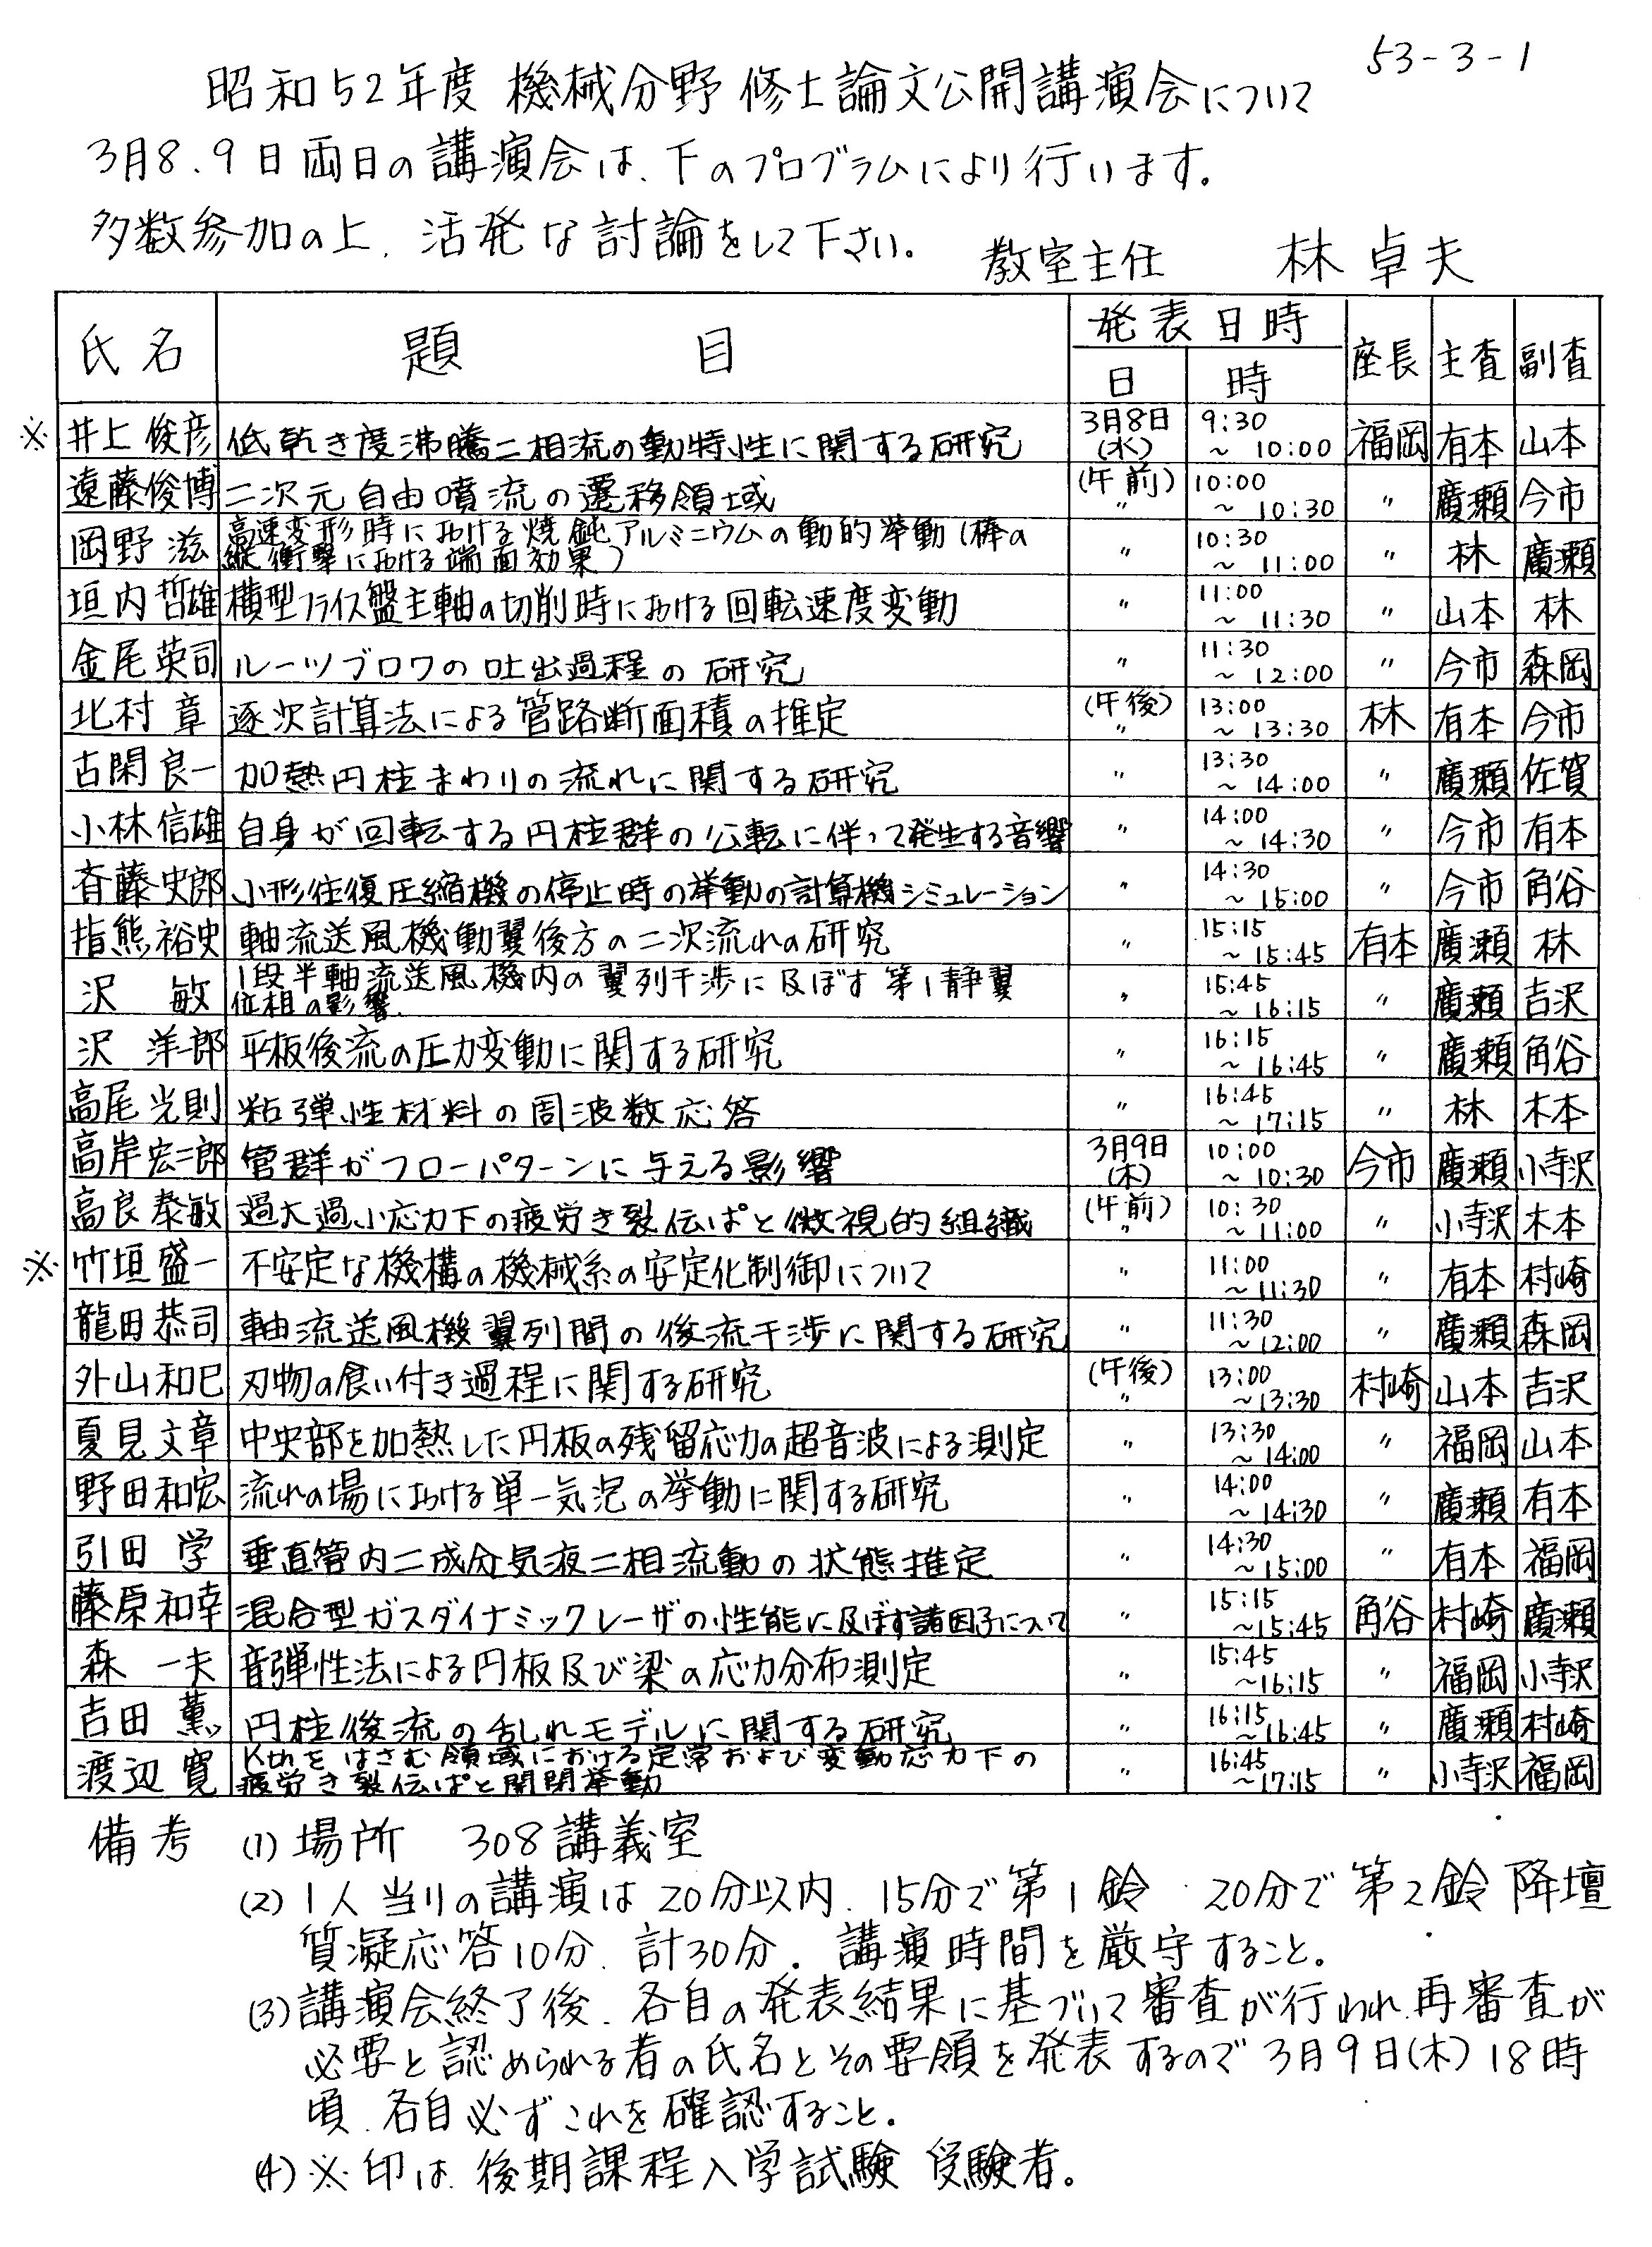 53-3-1
昭和52年度 機械分野 修士論文公開講演会について
3月8.9日両日の講演会は、下のプログラムにより行います。
多数参加の上、活発な討論をして下さい。 教室主任 林 卓夫
氏名 題目 発表日時 座長 主査 副査
日 時
※ 井上 俊彦 低乾き度沸騰二相流の動特性に関する研究 3月8日(水) 9:30 ~ 10:00 福岡 有本 山本
遠藤俊博 二次元自由噴流の遷移領域 (午前) 〃 10:00 ~ 10:30 〃 廣瀬 今市
岡野 滋 高速変形時における焼鈍アルミニウムの動的挙動(棒の 〃 10:30 ~ 11:00 〃 林 廣瀬
縦衝撃における端面効果)
垣内哲雄 横型フライス盤主軸の切削時における回転速度変動 〃 11:00 ~ 11:30 〃 山本 林
金尾英司 ルーツブロワの吐出過程の研究 〃 11:30 ~ 12:00 〃 今市 森岡
北村 章 逐次計算法による管路断面積の推定 (午後) 〃 13:00 ~ 13:30 林 有本 今市
古閑良一 加熱円柱まわりの流れに関する研究 〃 13:30 ~ 14:00 〃 廣瀬 佐賀
小林信雄 自身が回転する円柱群の公転に伴って発生する音響 〃 14:00 ~ 14:30 〃 今市 有本
斉藤史郎 小形往復圧縮機の停止時の挙動の計算機シミュレーション 〃 14:30 ~ 15:00 〃 今市 角谷
指熊裕史 軸流送風機動翼後方の二次流れの研究 〃 15:15 ~ 15:45 有本 廣瀬 林
沢 敏 1段半軸流送風機内の翼列干渉に及ぼす第1静翼 〃 15:45 ~ 16:15 〃 廣瀬 吉沢
位相の影響.
沢 洋一郎 平板後流の圧力変動に関する研究 〃 16:15 ~ 16:45 〃 廣瀬 角谷
高尾光則 粘弾性材料の周波数応答 〃 16:45 ~ 17:15 〃 林 木本
高岸宏三郎 管群がフローパターンに与える影響 3月9日(木) 10:00 ~ 10:30 今市 廣瀬 小寺沢
高良泰敏 過大過小応力下の疲労き裂伝ぱと微視的組織 (午前) 〃 10:30 ~ 11:00 〃 小寺沢 木本
※ 竹垣盛一 不安定な機構の機械系の安定化制御について 〃 11:00 ~ 11:30 〃 有本 村崎
龍田恭司 軸流送風機翼列間の後流干渉に関する研究 〃 11:30 ~ 12:00 〃 廣瀬 森岡
外山和巳 刃物の食い付き過程に関する研究 (午後) 〃 13:00 ~ 13:30 村崎 山本 吉沢
夏見文章 中央部を加熱した円板の残留応力の超音波による測定 〃 13:30 ~ 14:00 〃 福岡 山本
野田和宏 流れの場における単一気泡の挙動に関する研究 〃 14:00 ~ 14:30 〃 廣瀬 有本
引田 学 垂直管内二成分気液二相流動の状態推定 〃 14:30 ~ 15:00 〃 有本 福岡
藤原和幸 混合型ガスダイナミックレーザの性能に及ぼす諸因子について 〃 15:15 ~ 15:45 角谷 村崎 廣瀬
森 一夫 音弾性法による円板及び梁の応力分布測定 〃 15:45 ~ 16:15 〃 福岡 小寺沢
吉田 薫 円柱後流の乱れモデルに関する研究 〃 16:15 ~ 16:45 〃 廣瀬 村崎
渡辺 寛 Kthをはさむ領域における定常および変動応力下の 〃 16:45 ~ 17:15 〃 小寺沢 福岡
疲労き裂伝ぱと開閉挙動
備考 (1) 場所 308講義室
(2) 1人当りの講演は20分以内、15分で第1鈴 20分で第2鈴 降壇
質凝応答10分、計30分。講演時間を厳守すること。
(3) 講演会終了後、各自の発表結果に基づいて審査が行われ、再審査が
必要と認められる者の氏名とその要領を発表するので3月9日(木)18時
頃、各自必ずこれを確認すること。
(4) ※印は、後期課程入学試験 受験者。